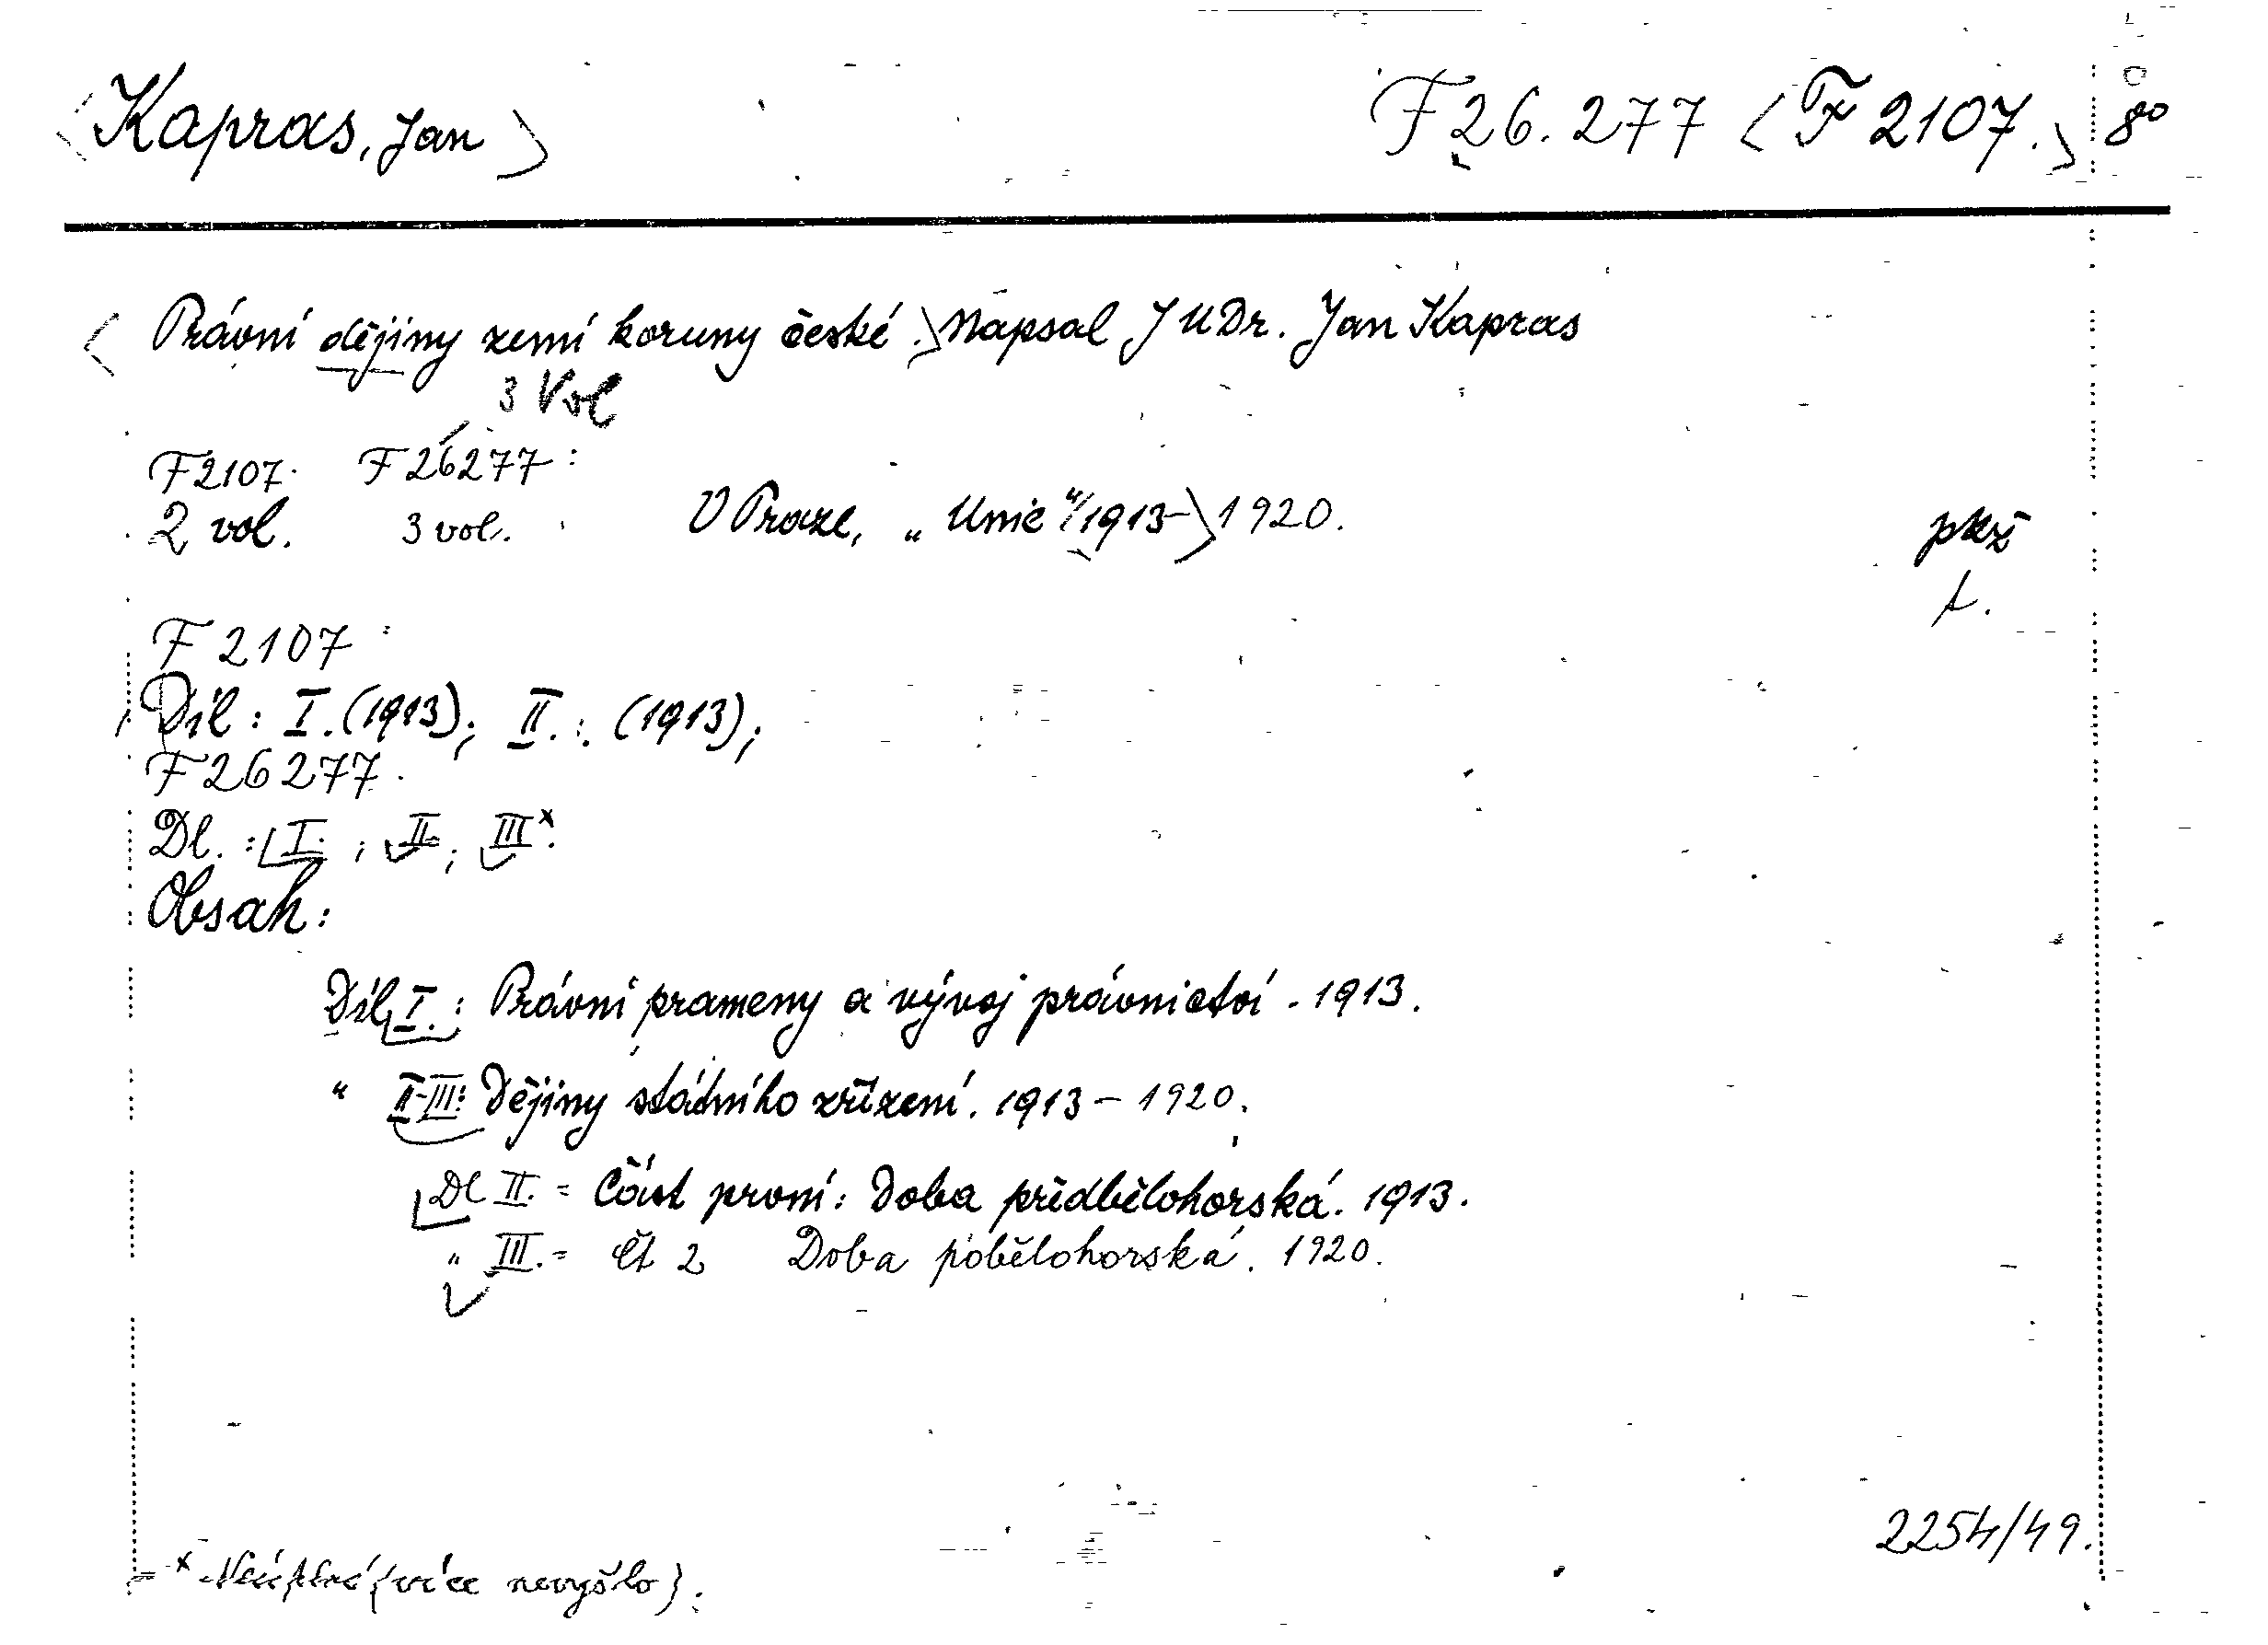 <Kapras, Jan> F 26.277 <F 2107.> 8°
<Právní dějiny zemí koruny české.> Napsal JUDr. Jan Kapras
3 Vol
F 2107. F 26277:
2 vol. 3 vol. V Praze, „Unie“ <1913-> 1920.
pkž
F 2107:
Díl: I. (1913); II.: (1913);
F 26277.
Dl.: I.; II.; III.x
Obsah:
Díl I.: Právní prameny a vývoj právnictví. 1913.
" II-III: Dějiny státního zřízení. 1913-1920.
Dl II. = Část první: Doba předbělohorská. 1913.
" III. = Čt 2 Doba pobělohorská. 1920.
2254/49.
x Neúplné (více nevyšlo).